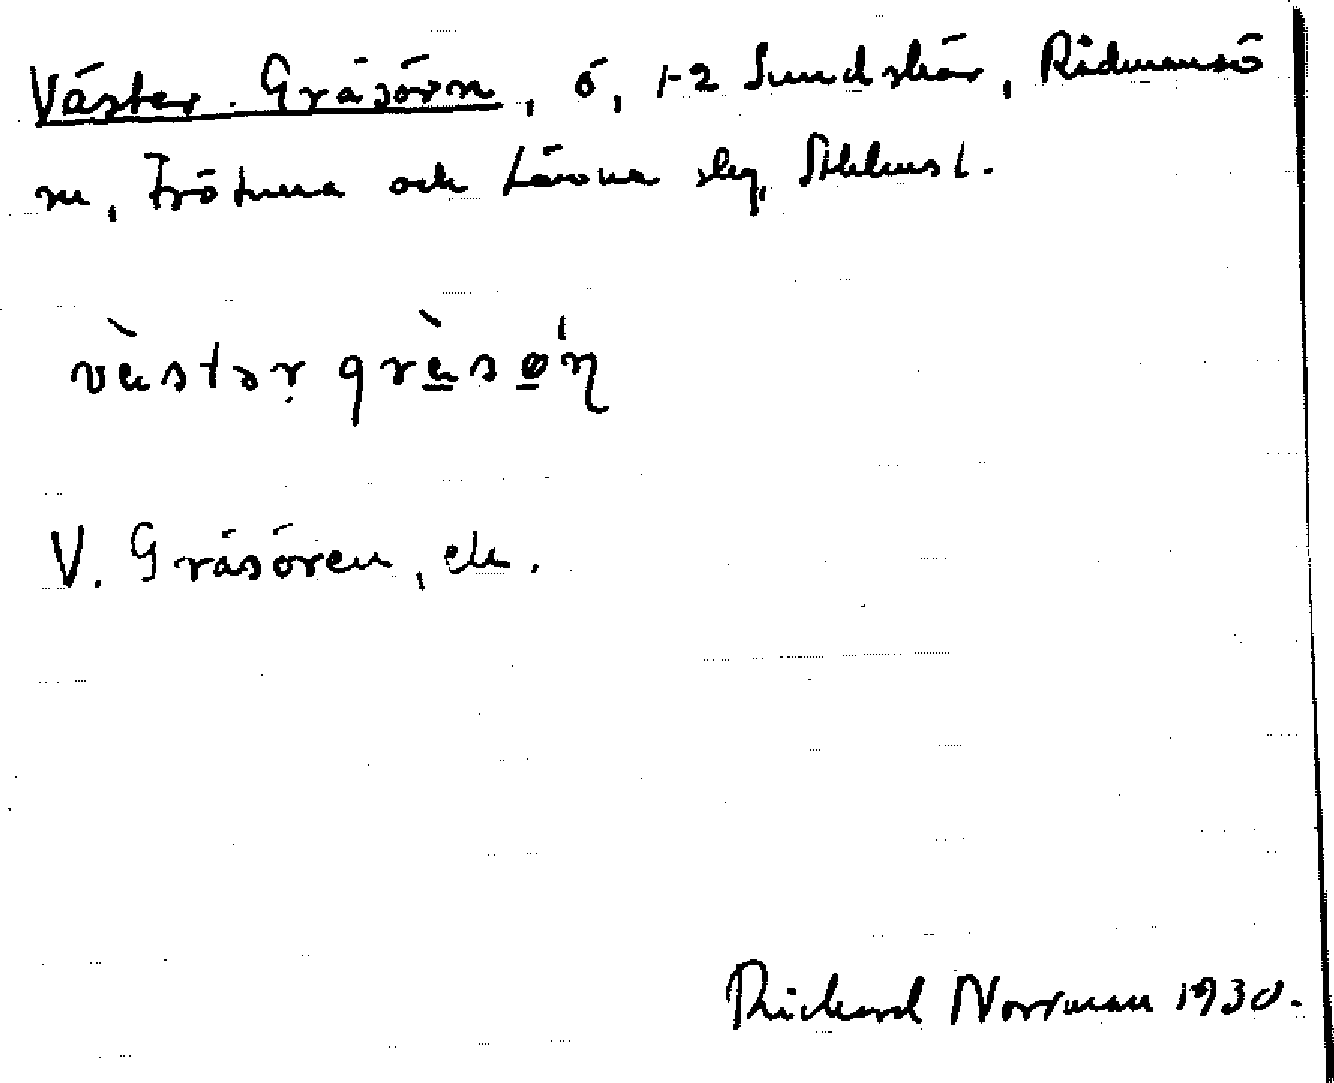 Väster Gräsörn, ö, 1-2 Sundskär, Rådmansö
m, Frötuna och Länna slg, Sthlms l.
vàstər gràsǿ'n
V. Gräsören, ek.
Richard Norrman 1930.